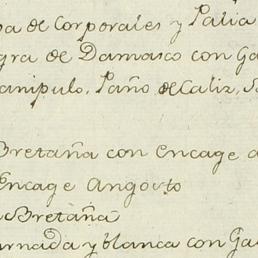 a de Corporales y Palia
gra de Damasco con Ga
anipulo, Paño de Caliz, 
Bretaña con encage a
Encage Angosto
Bretaña
urnada y blanca con Ga